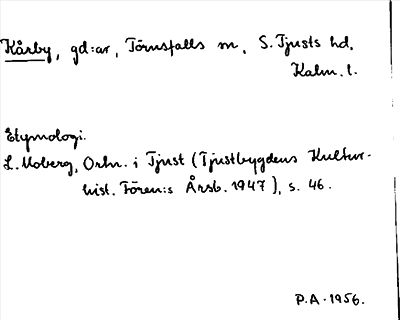 Kårby, gd:ar, Törnsfalls sn, S. Tjusts hd,
Kalm. l.
Etymologi.
L. Moberg, Ortn. i Tjust (Tjustbygdens Kultur-
hist. Fören:s Årsb. 1947), s. 46.
P.A. 1956.